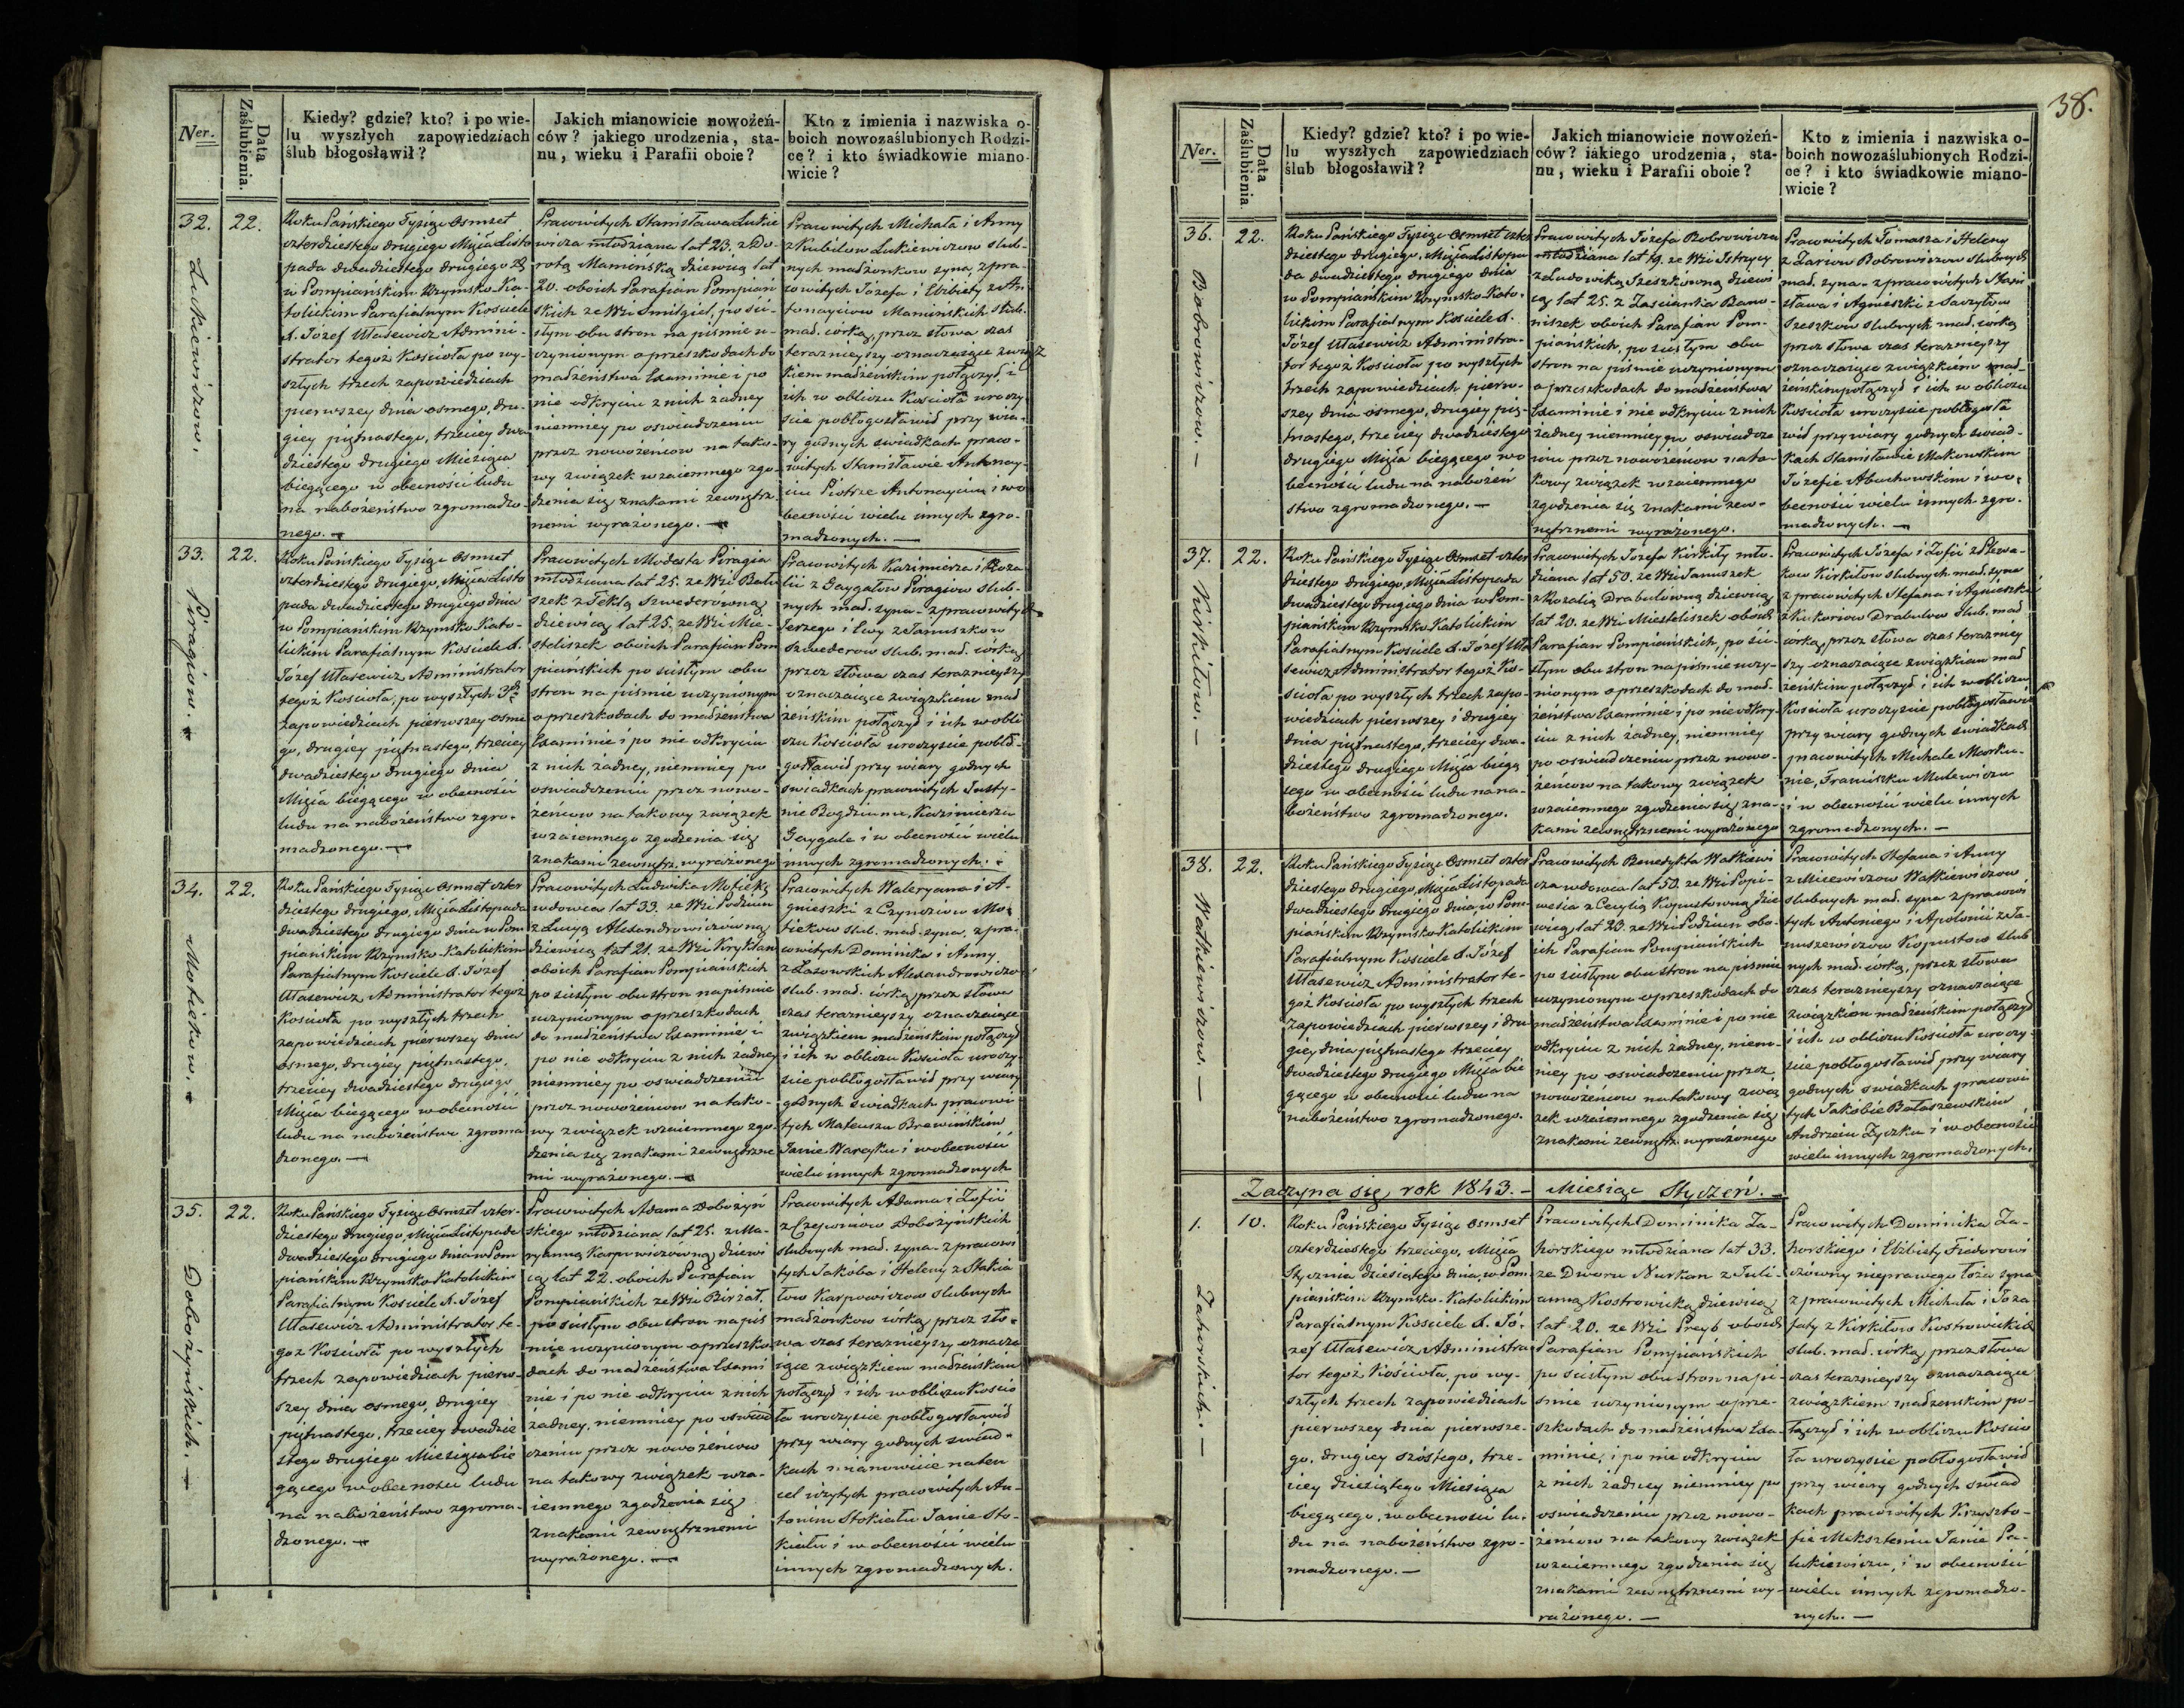 Ner.
Data Zaślubienia.
Kiedy? gdzie? kto? i po wie-
lu wyszłych zapowiedziach
ślub błogosławił?
Jakich mianowicie nowożeń-
ców? jakiego urodzenia, sta-
nu, wieku i Parafii oboie?
Kto z imienia i nazwiska o-
boich nowozaślubionych Rodzi-
ce? i kto świadkowie miano-
wicie?
32.
Lukiewiczow.
22.
Roku Pańskiego Tysiąc Osmset
czterdziestego drugiego Mięsiąca Listo
pada dwudziestego drugiego
w Pompiańskim Rzymsko Ka-
tolickim Parafialnym Kościele
X. Józef Utasewicz Admini-
strator tegoż Kościoła po wy-
szłych trzech zapowiedziach
pierwszey dnia osmego, dru-
giey piętnastego, trzeciey dwu
dziestego drugiego Miesiąca
biegącego w obecności ludu
na nabożeństwo zgromadzo-
nego. —
Pracowitych Stanisława Lukie
wicza młodziana lat 23. z Do-
rotą Mamińską dziewicą lat
20. oboich Parafian Pompian
skich ze Wsi Smilgiel, po ści-
słym obu stron na piśmie u-
czynionym o przeszkodach do
madżeństwa Examinie i po
nie odkryciu z nich żadney
niemniey po oswiadczeniu
przez nowożeńcow na tako-
wy związek wzaiemnego zgo-
dzenia się znakami zewnętrz-
nemi wyrażonego. —
Pracowitych Michała i Anny
z Kubilow Lukiewiczow slub-
nych madżonkow syna, z pra-
cowitych Józefa i Elżbiety z An
tonayciow Mamińskich slub.
mad. córką, przez słowa czas
teraznieyszy oznaczaiące związ
kiem madżeńskim połączył, i
ich w obliczu Kościoła uroczy
scie pobłogosławił przy wia-
ry godnych świadkach praco-
witych Stanisławie Antonay-
ciu Piotrze Antonayciu, i wo
becności wielu innych zgro-
madzonych. —
33.
Piragiow. —
22.
Roku Pańskiego Tysiąc Osmset
czterdziestego drugiego, Mięsiąca Listo
pada dwudziestego drugiego dnia
w Pompiańskim Rzymsko Kato-
lickim Parafialnym Kościele X.
Józef Utasewicz Administrator
tegoż Kościoła, po wyszłych 3ch
zapowiedziach pierwszey osme
go, drugiey piętnastego, trzeciey
dwudziestego drugiego dnia
Mięsiąca biegącego w obecności
ludu na nabożeństwo zgro-
madzonego. —
Pracowitych Modesta Piragia
młodziana lat 25. ze Wsi Balu
szek z Teklą Szwederówną
dziewicą lat 25. ze Wsi Mie-
steliszek oboich Parafian Pom
piańskich po ścisłym obu
stron na piśmie uczynionym
o przeszkodach do madżeństwa
Examinie i po nie odkryciu
z nich żadney, niemniey po
oświadczeniu przez nowo-
żeńcow na takowy związek
wzaiemnego zgodzenia się
znakami zewnętrz. wyrażonego
Pracowitych Kazimierza i Roza
lii z Gaygałow Piragiow slub-
nych mad. syna - z pracowitych
Jerzego i Ewy z Januszkow
Szwederow slub. mad. corką
przez słowa czas teraznieyszy
oznaczaiące związkiem mad
żeńskim połączył i ich w obli
czu Kościoła uroczyscie pobło-
gosławił przy wiary godnych
świadkach pracowitych Justy-
nie Bogdziunie, Kazimierzu
Gaygale i w obecności wielu
innych zgromadzonych.
34.
Mobiekow. —
22.
Roku Pańskiego Tysiąc Osmset czter
dziestego drugiego, Mięsiąca Listopada
dwudziestego drugiego dnia w Pom
piańskim Rzymsko-Katolickim
Parafialnym Kościele X. Józef
Utasewicz Administrator tegoż
Kościoła po wyszłych trzech
zapowiedziach pierwszey dnia
osmego, drugiey piętnastego,
trzeciey dwudziestego drugiego
Mięsiąca biegącego w obecności
ludu na nabożeństwo zgroma
dzonego. —
Pracowitych Ludwika Mobieką
wdowca lat 33. ze Wsi Podziun
z Lucyą Alexandrowiczówną
dziewicą lat 21. ze Wsi Kryklan
oboich Parafian Pompiańskich
po ścisłym obu stron na piśmie
uczynionym o przeszkodach
do madżeństwa Examinie i
po nie odkryciu z nich żadney
niemniey po oswiadczeniu
przez nowożeńcow na tako-
wy związek wzaiemnego zgo-
dzenia się znakami zewnętrzne
mi wyrażonego. —
Pracowitych Waleryana i A-
gnieszki z Czyndziow Mo-
biekow slub. mad. syna, z pra-
cowitych Dominika i Anny
z Łazowskich Alexandrowiczow
slub. mad. córką, przez słowa
czas teraznieyszy oznaczaiące
związkiem madżeńskim połączył
i ich w obliczu Kościoła uroczy-
scie pobłogosławił przy wiary
godnych świadkach pracowi
tych Mateuszu Brewińskim
Janie Warcyku i w obecności
wielu innych zgromadzonych
35.
Dobożyńskich. —
22.
Roku Pańskiego Tysiąc Osmset czter-
dziestego drugiego, Mięsiąca Listopada
dwudziestego drugiego dnia w Pom
piańskim Rzymsko Katolickim
Parafialnym Kościele X. Józef
Utasewicz Administrator te-
goż Kościoła po wyszłych
trzech zapowiedziach pierw-
szey dnia osmego, drugiey
piętnastego, trzeciey dwudzie
stego drugiego Miesiąca bie
gącego w obecności ludu
na nabożeństwo zgroma-
dzonego. —
Pracowitych Adama Dobożyń
skiego młodziana lat 25. z Ma-
ryanną Karpowiczówną dziewi
cą lat 22. oboich Parafian
Pompiańskich ze Wsi Birżał.
po ścisłym obu stron na piś
mie uczynionym o przeszko
dach do madżeństwa Exami
nie i po nie odkryciu z nich
żadney, niemniey po oświad
czeniu przez nowożeńcow
na takowy związek wza-
iemnego zgodzenia się
znakami zewnętrznemi
wyrażonego. —
Pracowitych Adama i Zofii
z Czeyomow Dobożyńskich
slubnych mad. syna - z pracowi
tych Jakóba i Heleny z Stakia
low Karpowiczow slubnych
madżonkow córką przez sło-
wa czas teraznieyszy oznacza
iące związkiem madżeńskim
połączył i ich w obliczu Kościo
ła uroczyscie pobłogosławił
przy wiary godnych swiad-
kach mianowicie na ten
cel użytych pracowitych An-
tonim Stokiału Janie Sto-
kiału i w obecności wielu
innych zgromadzonych.
38.
Ner.
Data Zaślubienia.
Kiedy? gdzie? kto? i po wie-
lu wyszłych zapowiedziach
ślub błogosławił?
Jakich mianowicie nowożeń-
ców? iakiego urodzenia, sta-
nu, wieku i Parafii oboie?
Kto z imienia i nazwiska o-
boich nowozaślubionych Rodzi-
ce? i kto świadkowie miano-
wicie?
36.
Bobrowiczow. —
22.
Roku Pańskiego Tysiąc Osmset czter
dziestego drugiego, Mięsiąca Listopa
da dwudziestego drugiego dnia
w Pompiańskim Rzymsko Kato-
lickim Parafialnym Kościele X.
Józef Utasewicz Administra-
tor tegoż Kościoła po wyszłych
trzech zapowiedziach pierw-
szey dnia osmego, drugiey pię-
tnastego, trzeciey dwudziestego
drugiego Mięsiąca biegącego w o
becności ludu na nabożeń
stwo zgromadzonego. —
Pracowitych Józefa Bobrowicza
młodziana lat 19. ze Wsi Istrycy
z Ludowiką Szeszkówną dziewi
cą lat 25. z Zascianka Bano-
niszek oboich Parafian Pom-
piańskich, po ścisłym obu
stron na piśmie uczynionym
o przeszkodach do madżeństwa
Examinie i nie odkryciu z nich
żadney niemniey po oswiadcze
niu przez nowożeńcow na ta-
kowy związek wzaiemnego
zgodzenia się znakami zew-
nętrznemi wyrażonego.
Pracowitych Tomasza i Heleny
z Zariow Bobrowiczow slubnych
mad. syna - z pracowitych Stani
sława i Agnieszki z Sawzytow
Szeszkow slubnych mad. córką
przez słowa czas teraznieyszy
oznaczaiące związkiem mad-
żeńskim połączył i ich w obliczu
Kościoła uroczyscie pobłogosła
wił przy wiary godnych swiad-
kach Stanisławie Makowskim
Józefie Abuchowskim i w o-
becności wielu innych zgro-
madzonych. —
37.
Kirkiłow. —
22.
Roku Pańskiego Tysiąc Osmset czter
dziestego drugiego, Mięsiąca Listopada
dwudziestego drugiego dnia w Pom-
piańskim Rzymsko Katolickim
Parafialnym Kościele X. Józef Uta
sewicz Administrator tegoż Ko-
ścioła po wyszłych trzech zapo-
wiedziach pierwszey i drugiey
dnia piętnastego, trzeciey dwu-
dziestego drugiego Mięsiąca biegą
cego w obecności ludu na na-
bożeństwo zgromadzonego.
Pracowitych Józefa Kirkiły mło-
dziana lat 50. ze Wsi Januszek
z Rozalią Drabulowną dziewicą
lat 20. ze Wsi Miesteliszek oboich
Parafian Pompiańskich, po ści-
słym obu stron na piśmie uczy-
nionym o przeszkodach do mad-
żeństwa Examinie i po nie odkry-
ciu z nich żadney, niemniey
po oswiadczeniu przez nowo-
żeńcow na takowy związek
wzaiemnego zgodzenia się zna-
kami zewnętrznemi wyrażonego
Pracowitych Józefa i Zofii z Stewa-
kow Kirkiłow slubnych mad. syna
z pracowitych Stefana i Agnieszki
z Kukoriow Drabulow slub. mad
corką, przez słowa czas terazniey
szy oznaczaiące związkiem mad
żeńskim połączył i ich w obliczu
Kościoła uroczyscie pobłogosławił
przy wiary godnych świadkach
pracowitych Michale Marku-
nie, Franciszku Mulewiczu
i w obecności wielu innych
zgromadzonych. —
38.
Watkiewiczow. —
22.
Roku Pańskiego Tysiąc Osmset czter
dziestego drugiego, Mięsiąca Listopada
dwudziestego drugiego dnia, w Pom-
piańskim Rzymsko Katolickim
Parafialnym Kościele X. Józef
Utasewicz Administrator te-
goż Kościoła po wyszłych trzech
zapowiedziach pierwszey i dru
giey dnia piętnastego trzeciey
dwudziestego drugiego Mięsiąca bie
gącego w obecności ludu na
nabożeństwo zgromadzonego.
Pracowitych Benedykta Watkiewi
cza wdowca lat 50. ze Wsi Popi-
wesia z Cecylią Kopustowną dzie
wicą lat 23. ze Wsi Podziun obo-
ich Parafian Pompiańskich
po ścisłym obu stron na piśmie
uczynionym o przeszkodach do
madżeństwa Examinie i po nie
odkryciu z nich żadney, niem-
niey po oswiadczeniu przez
nowożeńcow na takowy zwią
zek wzaiemnego zgodzenia się
znakami zewnętrz. wyrażonego
Pracowitych Stefana i Anny
z Micewiczow Watkiewiczow
slubnych mad. syna z pracowi
tych Antoniego i Apolonii z Ja-
nuszewiczow Kopustow slub
nych mad. córką, przez słowa
czas teraznieyszy oznaczaiące
związkiem madżeńskim połączył
i ich w obliczu Kościoła uroczy-
scie pobłogosławił przy wiary
godnych swiadkach pracowi
tych Jakóbie Bałaszewskim
Andrzeiu Zyczku i w obecności
wielu innych zgromadzonych.
Zaczyna się, rok 1843. — Miesiąc Styczeń. —
1.
Zahorskich. —
10.
Roku Pańskiego Tysiąc Osmset
czterdziestego trzeciego, Mięsiąca
Stycznia dziesiątego dnia, w Pom
piańskim Rzymsko-Katolickim
Parafialnym Kościele X. Jó-
zef Utasewicz Administra
tor tegoż Kościoła, po wy-
szłych trzech zapowiedziach
pierwszey dnia pierwsze-
go, drugiey szóstego, trze-
ciey dziesiątego Miesiąca
biegącego, w obecności lu-
du na nabożeństwo zgro-
madzonego. —
Pracowitych Dominika Za-
horskiego młodziana lat 33.
ze Dworu Nurkan z Juli-
anną Kostrowicką dziewicą
lat 20. ze Wsi Preyb oboich
Parafian Pompiańskich
po ścisłym obu stron na pi-
śmie uczynionym o prze-
szkodach do madżeństwa Exa-
minie, i po nie odkryciu
z nich żadney niemniey po
oswiadczeniu przez nowo-
żeńcow na takowy związek
wzaiemnego zgodzenia się
znakami zewnętrznemi wy-
rażonego. —
Pracowitych Dominika Za-
horskiego i Elżbiety Fiedorowi
czówny nieprawego łoża syna
z pracowitych Michała i Joza
faty z Kirkiłow Kostrowickich
slub. mad. córką przez słowa
czas teraznieyszy oznaczaiące
związkiem madżeńskim po-
łączył i ich w obliczu Kościo
ła uroczyscie pobłogosławił
przy wiary godnych swiad
kach pracowitych Krzyszto-
fie Mekszteniu Janie Pa-
lukiewiczu, i w obecności
wielu innych zgromadzo-
nych. —